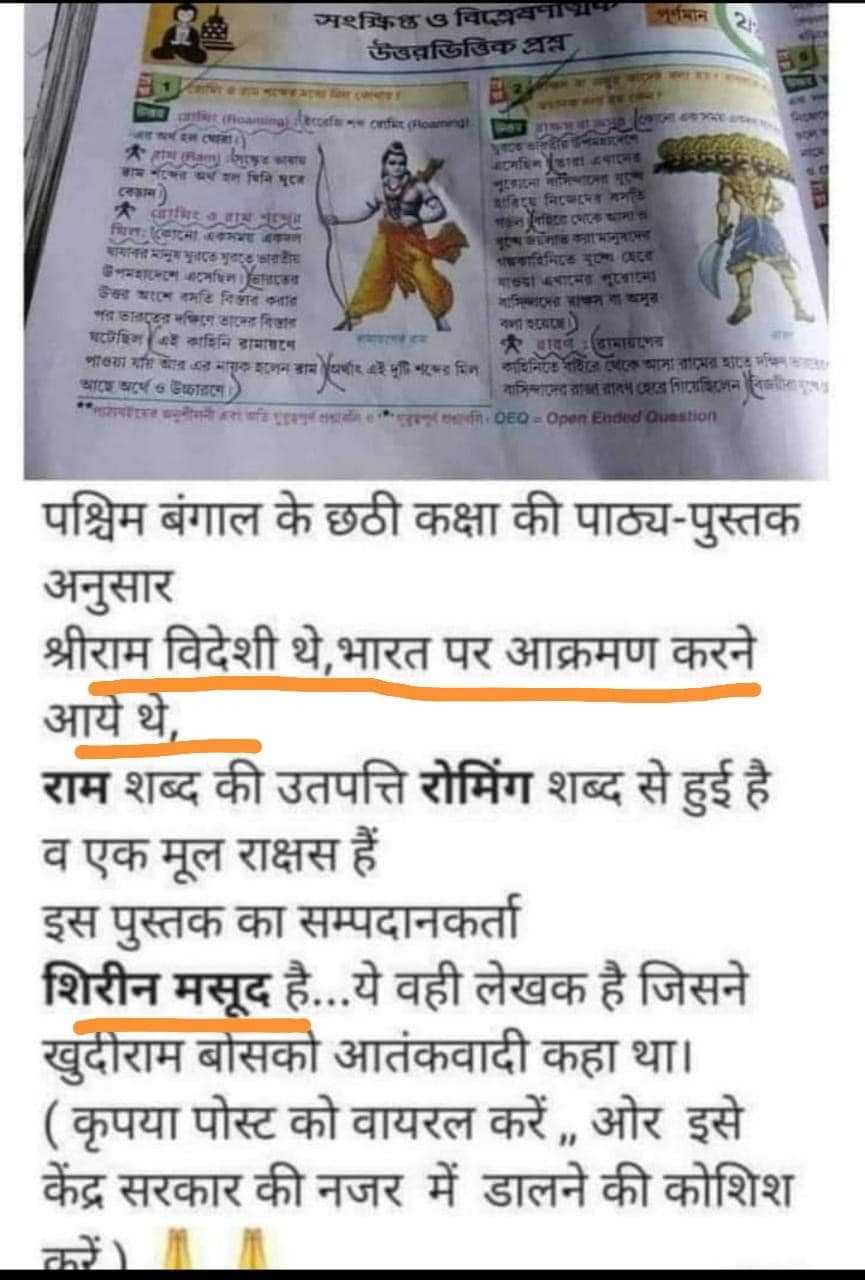 সংক্ষিপ্ত ও বিশ্লেষণাত্মক
উত্তরভিত্তিক প্রশ্ন
পূর্ণমান
1
রোমিং (Roaming) ইংরেজি শব্দ রোমিং (Roaming)
-এর অর্থ হল ঘোরা।
রাম (Ram) সংস্কৃত ভাষায়
রাম শব্দের অর্থ হল যিনি ঘুরে
বেড়ান।
রোমিং ও রাম শব্দের
মিল: কোনো একসময় একদল
যাযাবর মানুষ ঘুরতে ঘুরতে ভারতীয়
উপমহাদেশে এসেছিল। ভারতের
উত্তর অংশে বসতি বিস্তার করার
পর ভারতের দক্ষিণে তাদের বিস্তার
ঘটেছিল। এই কাহিনি রামায়ণে
পাওয়া যায় আর এর নায়ক হলেন রাম। অর্থাৎ এই দুটি শব্দের মিল
আছে অর্থে ও উচ্চারণে।
2
এসেছিল। তারা এখানের
পুরোনো বাসিন্দাদের যুদ্ধে
হারিয়ে নিজেদের বসতি
গড়ল। বাইরে থেকে আসা ও
যুদ্ধে জয়লাভ করা মানুষদের
গল্পকাহিনিতে যুদ্ধে হেরে
যাওয়া এখানের পুরোনো
বাসিন্দাদের রাক্ষস বা অসুর
বলা হয়েছে।
রাবণ: রামায়ণের
কাহিনিতে বাইরে থেকে আসা রামের হাতে দক্ষিণ ভারতের
বাসিন্দাদের রাজা রাবণ হেরে গিয়েছিলেন। বিজয়ীরা যুদ্ধে
OEQ = Open Ended Question
पश्चिम बंगाल के छठी कक्षा की पाठ्य-पुस्तक
अनुसार
श्रीराम विदेशी थे,भारत पर आक्रमण करने
आये थे,
राम शब्द की उतपत्ति रोमिंग शब्द से हुई है
व एक मूल राक्षस हैं
इस पुस्तक का सम्पदानकर्ता
शिरीन मसूद है...ये वही लेखक है जिसने
खुदीराम बोसको आतंकवादी कहा था।
( कृपया पोस्ट को वायरल करें ,, ओर इसे
केंद्र सरकार की नजर में डालने की कोशिश
करें )